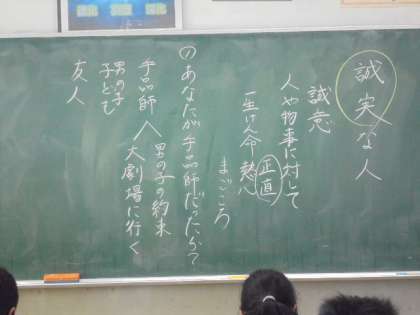 誠実な人
誠意
人や物事に対して
正直
一生けん命 熱心
まごころ
のあなたが手品師だったら?
手品師
男の子の約束
大劇場に行く
男の子
子ども
友人